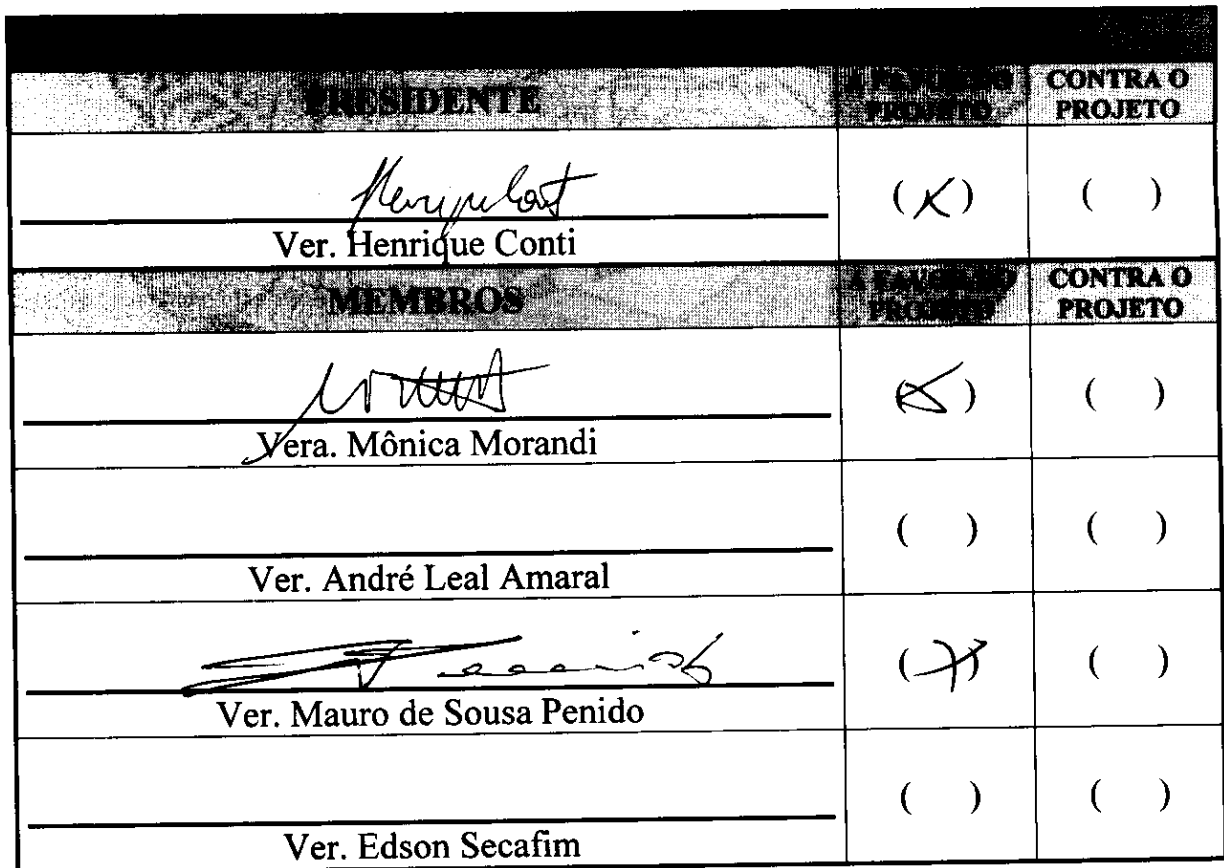 PRESIDENTE A FAVOR DO PROJETO CONTRA O PROJETO
(X) ( )
Ver. Henrique Conti
MEMBROS A FAVOR DO PROJETO CONTRA O PROJETO
(X) ( )
Vera. Mônica Morandi
( ) ( )
Ver. André Leal Amaral
(X) ( )
Ver. Mauro de Sousa Penido
( ) ( )
Ver. Edson Secafim